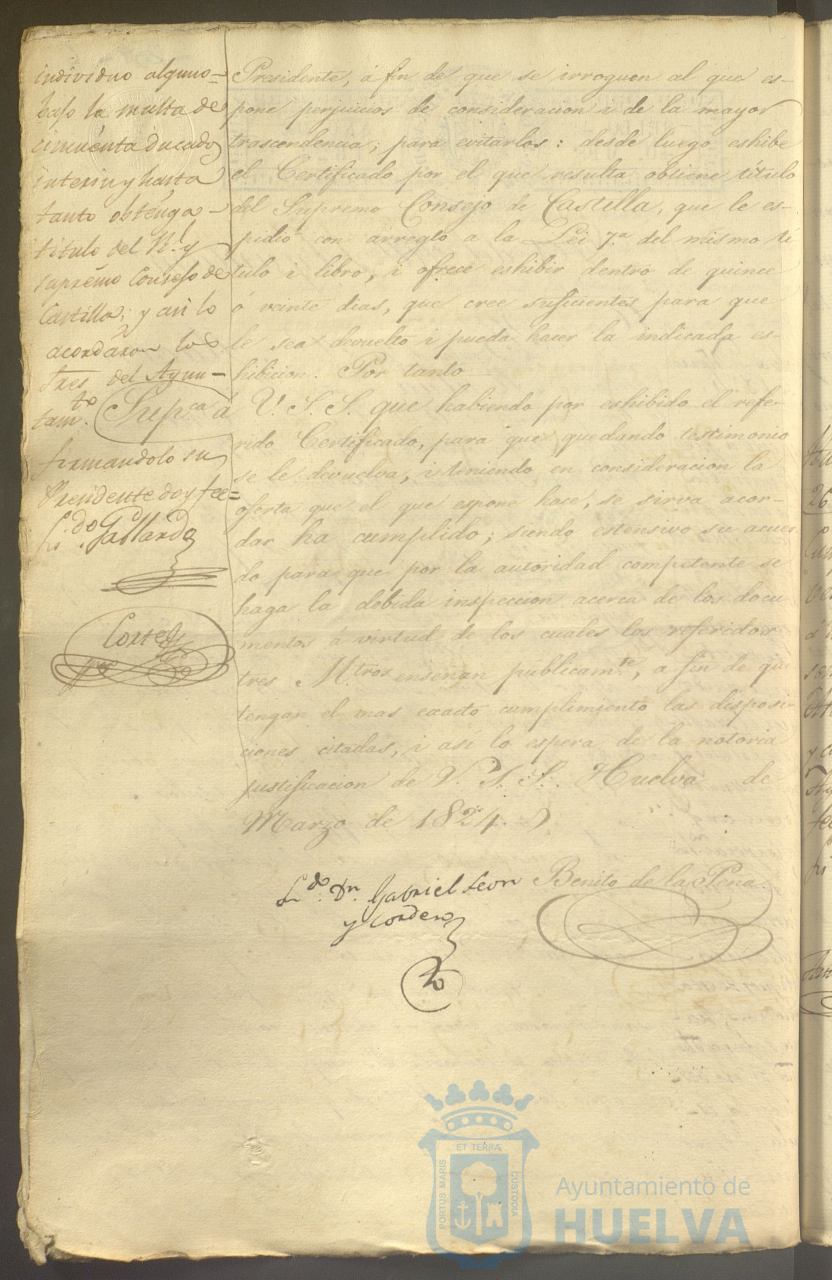 individuo alguno=
bajo la multa de
cinquenta ducados
interin y hasta
tanto obtenga -
titulo del Rl. y
supremo Consejo de
Castilla; y asi lo
acordaron los
Sres. del Ayun-
tamto.
firmandolo su
Presidente doy fee=
Ldo. Gallardo
Cortes
Presidente, á fin de que se irroguen al que es-
pone perjuicios de consideracion i de la mayor
trascendencia; para evitarlos: desde luego eshibe
el Certificado por el que resulta obtiene título
del Supremo Consejo de Castilla, que le es-
pidió con arreglo a la Lei 7.a del mismo tí
tulo i libro, i ofrece eshibir dentro de quince
ó veinte dias, que cree suficientes para que
le sea devuelto i pueda hacer la indicada es-
hibicion. Por tanto
Supca. á V. S. S. que habiendo por eshibido el refe-
rido Certificado, para que quedando testimonio
se le devuelva, i teniendo en consideracion la
oferta que el que espone hace, se sirva acor-
dar ha cumplido; siendo estensivo su acuer
do para que por la autoridad competente se
haga la debida inspeccion acerca de los docu
mentos á virtud de los cuales los referidos
tres Mtros. enseñan publicamte., a fin de que
tengan el mas exacto cumplimiento las disposi
ciones citadas, i así lo espera de la notoria
justificacion de V. S. S. Huelva de
Marzo de 1824.
Ldo. Dn. Gabriel Leon
y Cordero
Benito de la Peña.
ET TERRÆ
PORTUS MARIS
CUSTODIA
Ayuntamiento de
HUELVA